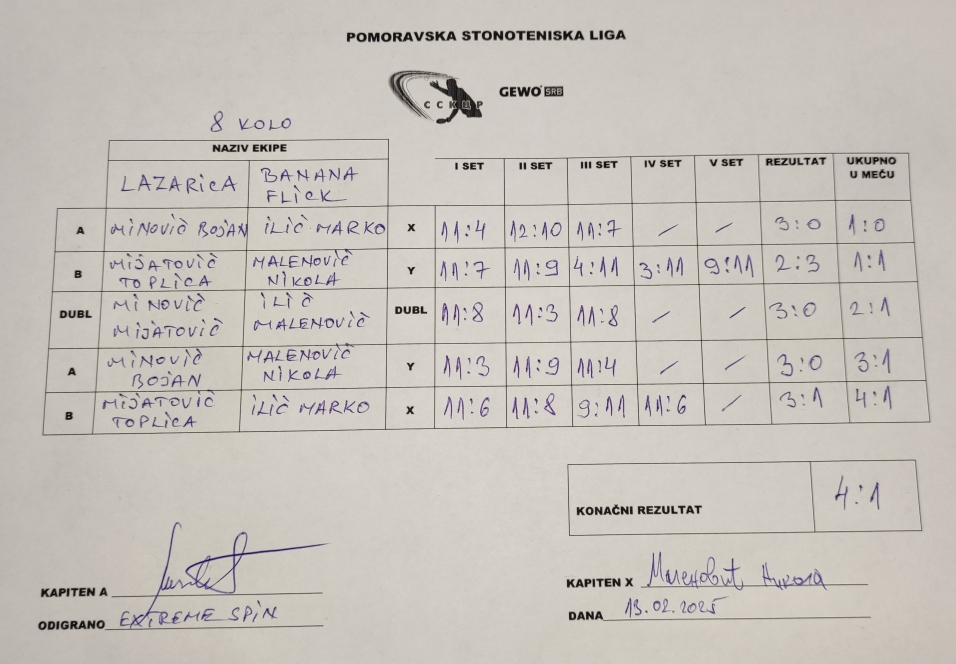 POMORAVSKA STONOTENISKA LIGA
ССКЦР GEWO SRB
8 KOLO
NAZIV EKIPE I SET II SET III SET IV SET V SET REZULTAT UKUPNO U MEČU
LAZARICA BANANA FLICK
A MINOVIČ BOJAN ILIČ MARKO X 11:4 12:10 11:7 / / 3:0 1:0
B MIJATOVIČ TOPLICA MALENOVIČ NIKOLA Y 11:7 11:9 4:11 3:11 9:11 2:3 1:1
DUBL MINOVIČ MIJATOVIČ ILIČ MALENOVIČ DUBL 11:8 11:3 11:8 / / 3:0 2:1
A MINOVIČ BOJAN MALENOVIČ NIKOLA Y 11:3 11:9 11:4 / / 3:0 3:1
B MIJATOVIČ TOPLICA ILIČ MARKO X 11:6 11:8 9:11 11:6 / 3:1 4:1
KONAČNI REZULTAT 4:1
KAPITEN A
KAPITEN X Маленовић Никола
ODIGRANO EXTREME SPIN
DANA 13.02.2025